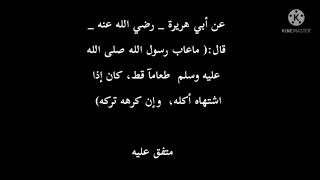 KINEMASTER
عن أبي هريرة _ رضي الله عنه _
قال:( ماعاب رسول الله صلى الله
عليه وسلم طعاماً قط، كان إذا
اشتهاه أكله، وإن كرهه تركه)
متفق عليه